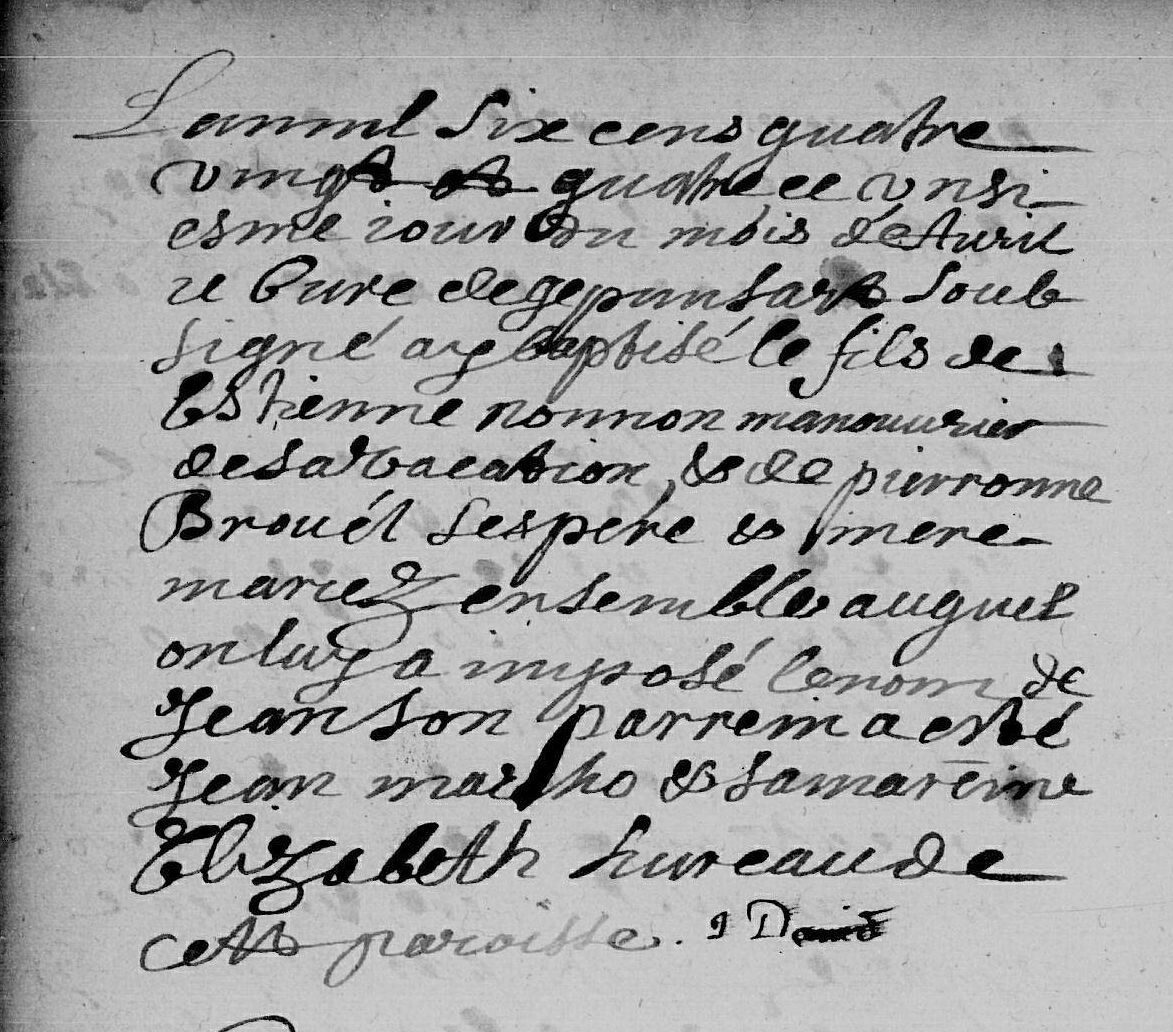 Lan mil Six cens quatre
vingt et quatre ce unsi-
esme iour du mois de Avril
ie Cure de gepunsart Soub
signé ay baptisé le fils de
Estienne nonnon manouvrier
de sa vacation, & de pierronne
Brouét Ses pére & mere
mariez ensemble auquel
on luy a imposé le nom de
Jean Son parrein a esté
Jean marcho & sa mareine
Elizabeth hureau de
cette paroisse. J D